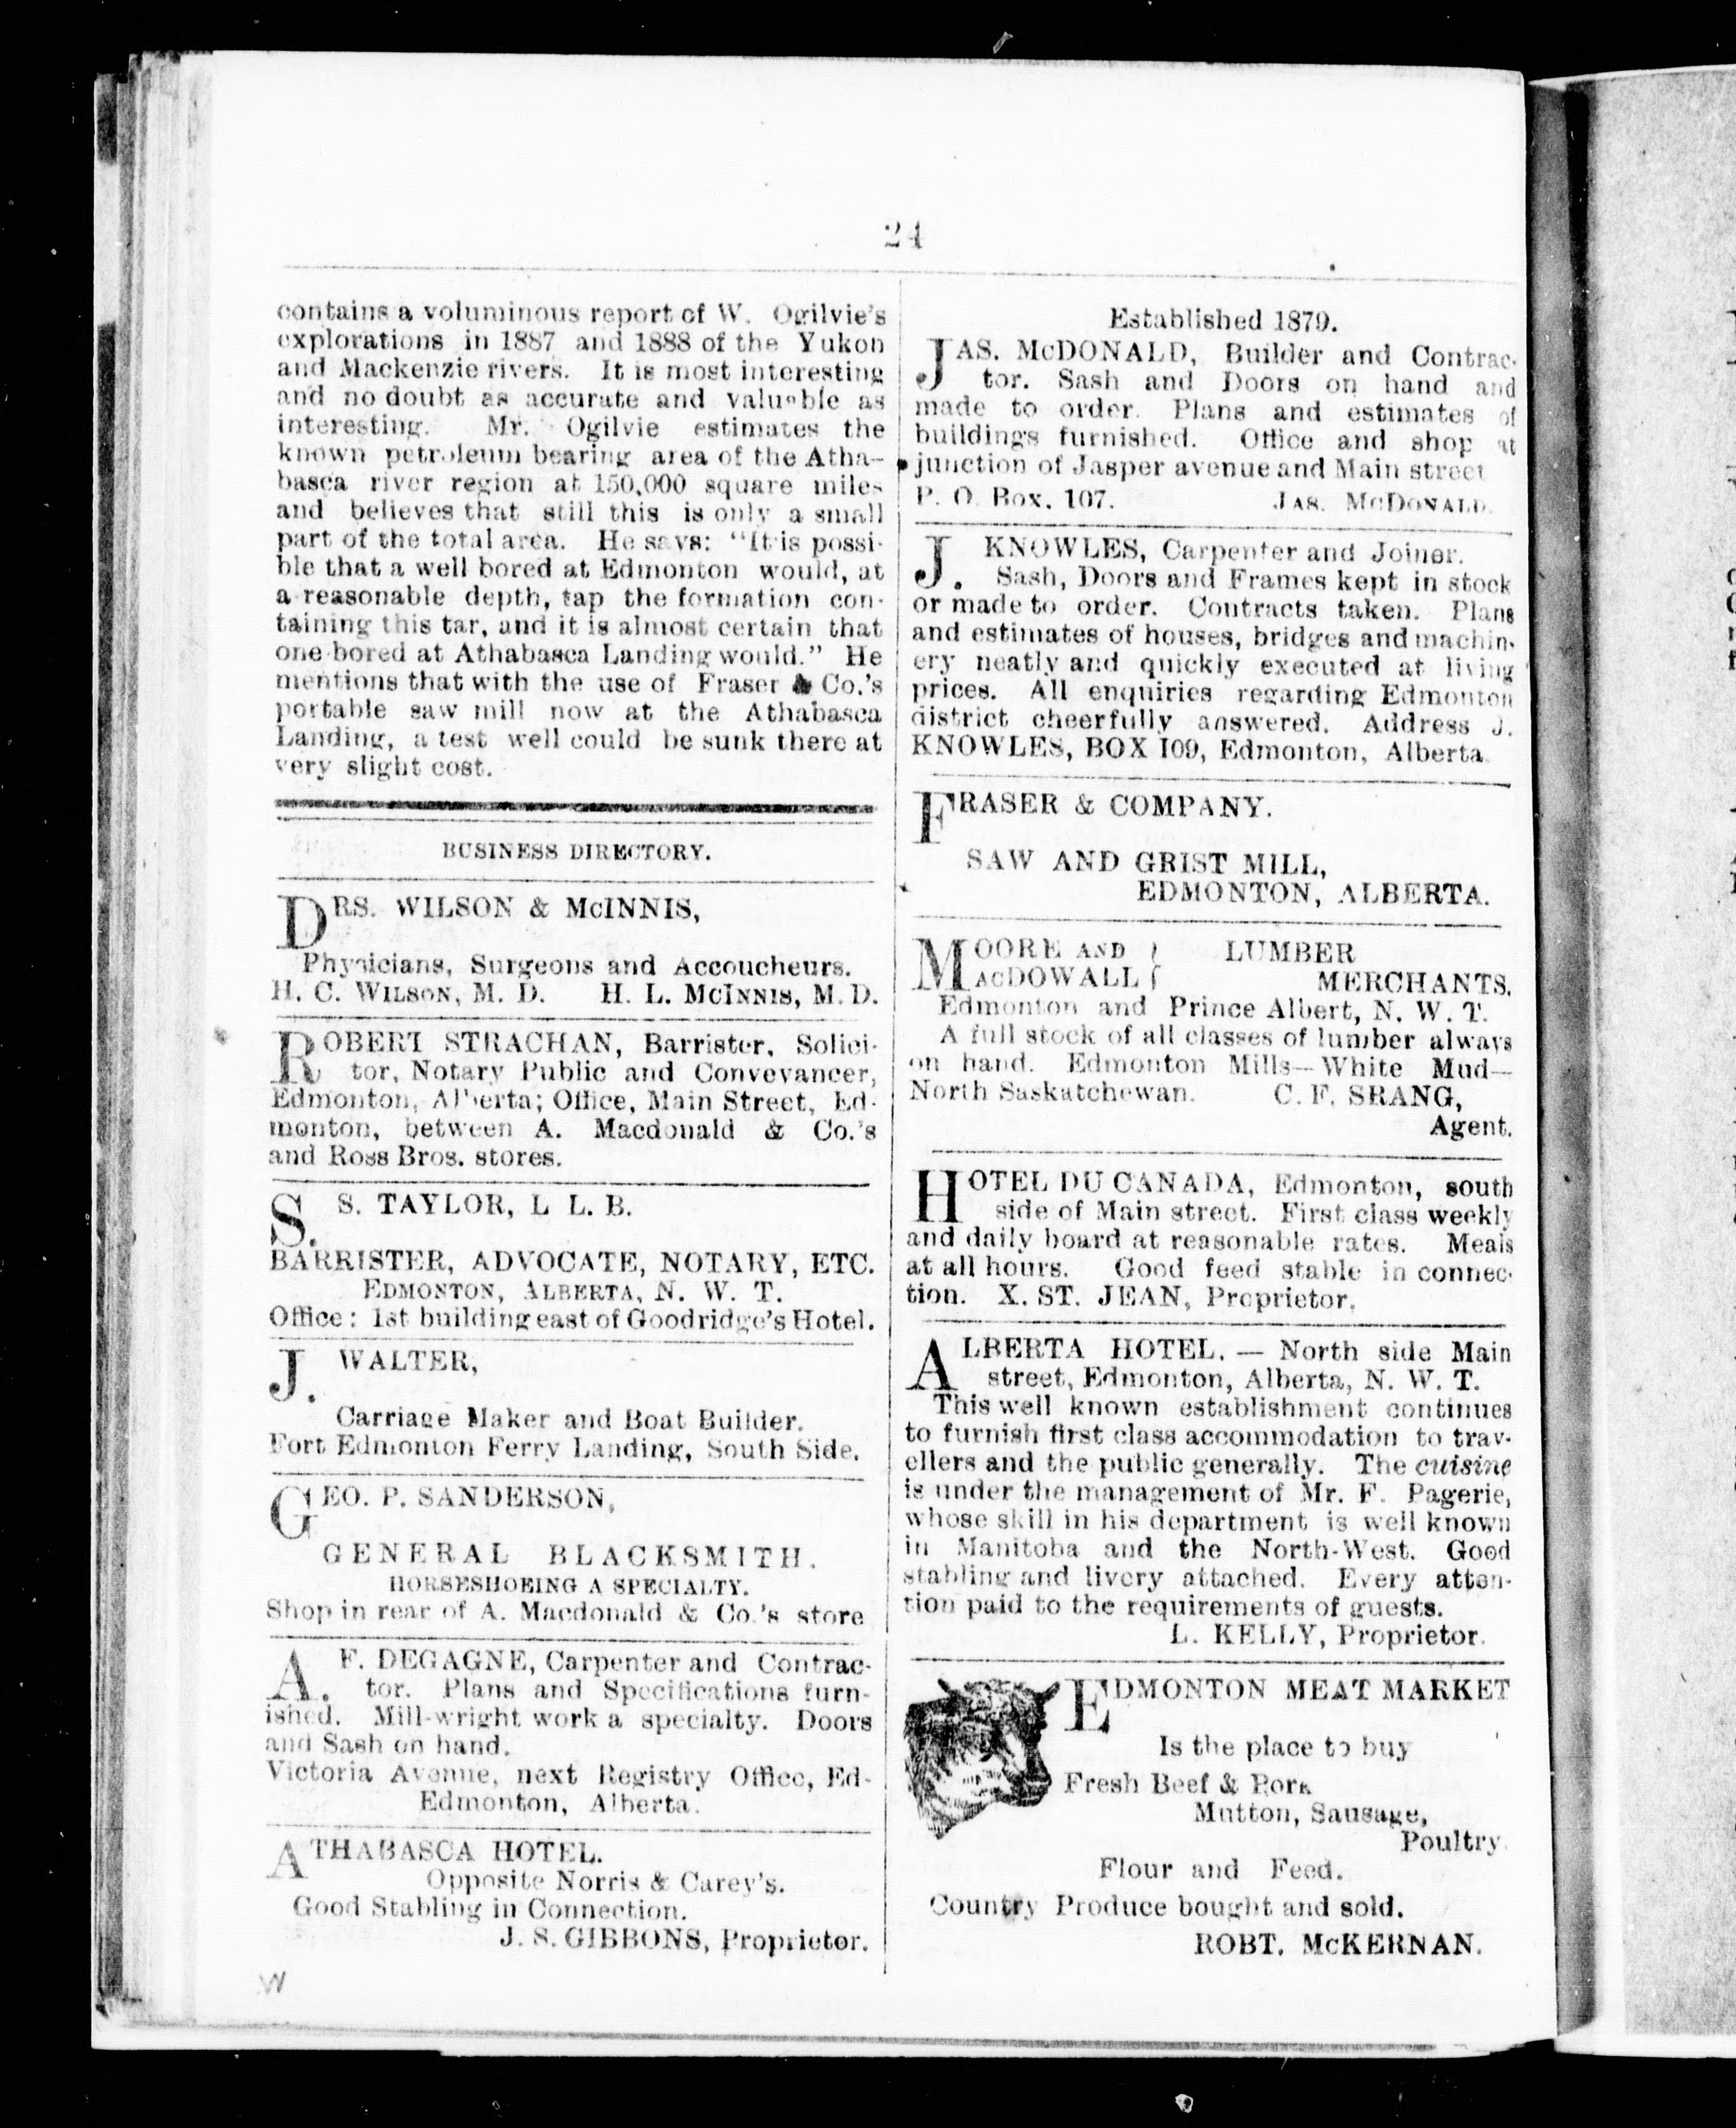 24
contains a voluminous report of W. Ogilvie's
explorations in 1887 and 1888 of the Yukon
and Mackenzie rivers. It is most interesting
and no doubt as accurate and valuable as
interesting. Mr. Ogilvie estimates the
known petroleum bearing area of the Atha-
basca river region at 150,000 square miles
and believes that still this is only a small
part of the total area. He says: "It is possi-
ble that a well bored at Edmonton would, at
a reasonable depth, tap the formation con-
taining this tar, and it is almost certain that
one bored at Athabasca Landing would." He
mentions that with the use of Fraser & Co.'s
portable saw mill now at the Athabasca
Landing, a test well could be sunk there at
very slight cost.
BUSINESS DIRECTORY.
DRS. WILSON & McINNIS,
Physicians, Surgeons and Accoucheurs.
H. C. WILSON, M. D. H. L. McINNIS, M. D.
ROBERT STRACHAN, Barrister, Solici-
tor, Notary Public and Conveyancer,
Edmonton, Alberta; Office, Main Street, Ed-
monton, between A. Macdonald & Co.'s
and Ross Bros. stores.
S. S. TAYLOR, L L. B.
BARRISTER, ADVOCATE, NOTARY, ETC.
EDMONTON, ALBERTA, N. W. T.
Office: 1st building east of Goodridge's Hotel.
J. WALTER,
Carriage Maker and Boat Builder.
Fort Edmonton Ferry Landing, South Side.
GEO. P. SANDERSON,
GENERAL BLACKSMITH.
HORSESHOEING A SPECIALTY.
Shop in rear of A. Macdonald & Co.'s store
A. F. DEGAGNE, Carpenter and Contrac-
tor. Plans and Specifications furn-
ished. Mill-wright work a specialty. Doors
and Sash on hand.
Victoria Avenue, next Registry Office, Ed-
Edmonton, Alberta.
ATHABASCA HOTEL.
Opposite Norris & Carey's.
Good Stabling in Connection.
J. S. GIBBONS, Proprietor.
W
Established 1879.
JAS. McDONALD, Builder and Contrac-
tor. Sash and Doors on hand and
made to order. Plans and estimates of
buildings furnished. Office and shop at
junction of Jasper avenue and Main street
P. O. Box, 107. JAS. McDONALD.
J. KNOWLES, Carpenter and Joiner.
Sash, Doors and Frames kept in stock
or made to order. Contracts taken. Plans
and estimates of houses, bridges and machin-
ery neatly and quickly executed at living
prices. All enquiries regarding Edmonton
district cheerfully answered. Address J.
KNOWLES, BOX 109, Edmonton, Alberta.
FRASER & COMPANY.
SAW AND GRIST MILL,
EDMONTON, ALBERTA.
MOORE AND } LUMBER
MACDOWALL } MERCHANTS.
Edmonton and Prince Albert, N. W. T.
A full stock of all classes of lumber always
on hand. Edmonton Mills—White Mud—
North Saskatchewan. C. F. SRANG,
Agent.
HOTEL DU CANADA, Edmonton, south
side of Main street. First class weekly
and daily board at reasonable rates. Meals
at all hours. Good feed stable in connec-
tion. X. ST. JEAN, Proprietor.
ALBERTA HOTEL. — North side Main
street, Edmonton, Alberta, N. W. T.
This well known establishment continues
to furnish first class accommodation to trav-
ellers and the public generally. The cuisine
is under the management of Mr. F. Pagerie,
whose skill in his department is well known
in Manitoba and the North-West. Good
stabling and livery attached. Every atten-
tion paid to the requirements of guests.
L. KELLY, Proprietor.
EDMONTON MEAT MARKET
Is the place to buy
Fresh Beef & Pork
Mutton, Sausage,
Poultry.
Flour and Feed.
Country Produce bought and sold.
ROBT. McKERNAN.